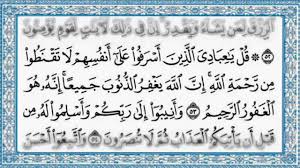 ٱلرِّزْقَ لِمَن يَشَآءُ وَيَقْدِرُ إِنَّ فِى ذَٰلِكَ لَءَايَٰتٍ لِّقَوْمٍ يُؤْمِنُونَ
۝٥٢ ۞ قُلْ يَٰعِبَادِىَ ٱلَّذِينَ أَسْرَفُوا۟ عَلَىٰٓ أَنفُسِهِمْ لَا تَقْنَطُوا۟
مِن رَّحْمَةِ ٱللَّهِ ۚ إِنَّ ٱللَّهَ يَغْفِرُ ٱلذُّنُوبَ جَمِيعًا ۚ إِنَّهُۥ هُوَ
ٱلْغَفُورُ ٱلرَّحِيمُ ۝٥٣ وَأَنِيبُوٓا۟ إِلَىٰ رَبِّكُمْ وَأَسْلِمُوا۟ لَهُۥ
مِن قَبْلِ أَن يَأْتِيَكُمُ ٱلْعَذَابُ ثُمَّ لَا تُنصَرُونَ ۝٥٤ وَٱتَّبِعُوٓا۟ أَحْسَنَ